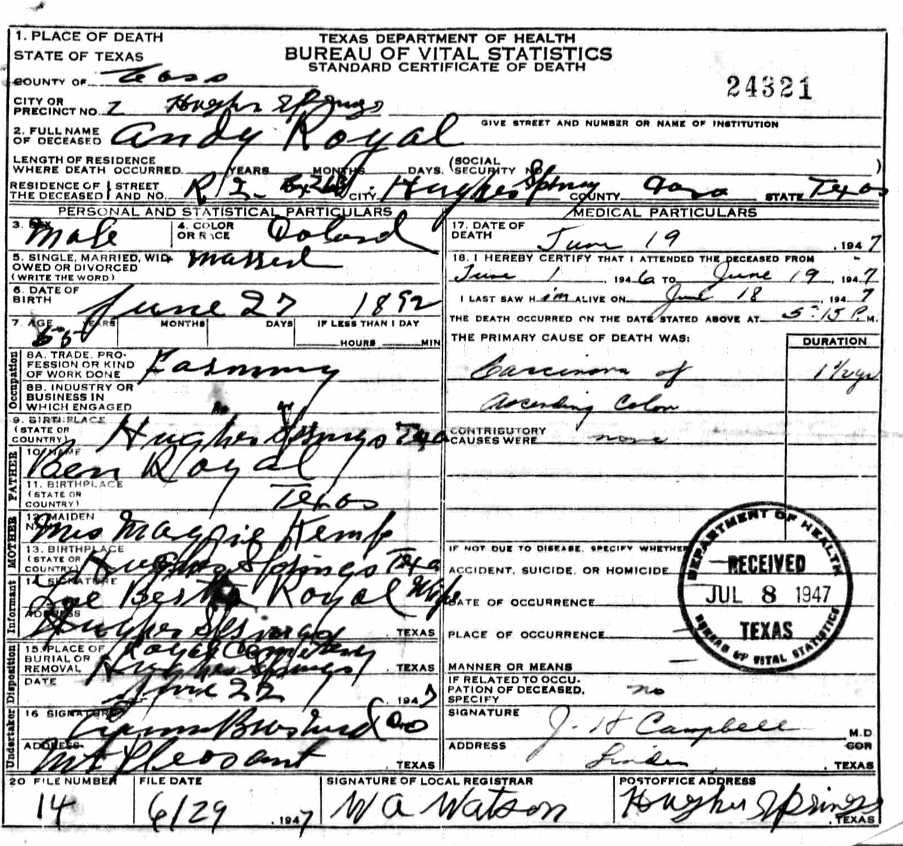 TEXAS DEPARTMENT OF HEALTH
BUREAU OF VITAL STATISTICS
STANDARD CERTIFICATE OF DEATH
24321
1. PLACE OF DEATH
STATE OF TEXAS
COUNTY OF Cass
CITY OR PRECINCT NO. 2 Hughes Springs
GIVE STREET AND NUMBER OR NAME OF INSTITUTION
2. FULL NAME OF DECEASED Andy Royal
LENGTH OF RESIDENCE WHERE DEATH OCCURRED YEARS MONTHS DAYS. (SOCIAL SECURITY NO. )
RESIDENCE OF THE DECEASED STREET AND NO. R 2 CITY Hughes Springs COUNTY Cass STATE Texas
PERSONAL AND STATISTICAL PARTICULARS
3. SEX Male
4. COLOR OR RACE Colord
5. SINGLE, MARRIED, WIDOWED OR DIVORCED (WRITE THE WORD) married
6. DATE OF BIRTH June 27 1892
7. AGE 55 YEARS MONTHS DAYS IF LESS THAN 1 DAY HOURS MIN
Occupation
8A. TRADE, PROFESSION OR KIND OF WORK DONE Farming
8B. INDUSTRY OR BUSINESS IN WHICH ENGAGED
9. BIRTHPLACE (STATE OR COUNTRY) Hughes Springs Texa
FATHER
10. NAME Ben Royal
11. BIRTHPLACE (STATE OR COUNTRY) Texas
MOTHER
12. MAIDEN NAME Mrs Maggie Kemp
13. BIRTHPLACE (STATE OR COUNTRY) Hughes Springs Texa
Informant
14. SIGNATURE Bertha Royal Wife
ADDRESS Hughes Springs, TEXAS
Disposition
15. PLACE OF BURIAL OR REMOVAL Royal Cemetery Hughes Springs, TEXAS
DATE June 22 1947
Undertaker
16 SIGNATURE
ADDRESS Mt Pleasant, TEXAS
MEDICAL PARTICULARS
17. DATE OF DEATH June 19, 1947
18. I HEREBY CERTIFY THAT I ATTENDED THE DECEASED FROM
June 1 1946 TO June 19, 1947
I LAST SAW Him ALIVE ON June 18 1947
THE DEATH OCCURRED ON THE DATE STATED ABOVE AT 5:15 P. M.
THE PRIMARY CAUSE OF DEATH WAS: DURATION
Carcinoma of 1 1/2 yr
Ascending Colon
CONTRIBUTORY CAUSES WERE none
IF NOT DUE TO DISEASE, SPECIFY WHETHER
ACCIDENT, SUICIDE, OR HOMICIDE
DATE OF OCCURRENCE
PLACE OF OCCURRENCE
MANNER OR MEANS
IF RELATED TO OCCUPATION OF DECEASED, SPECIFY no
SIGNATURE J. H Campbell M.D
ADDRESS Linden COR, TEXAS
DEPARTMENT OF HEALTH
RECEIVED
JUL 8 1947
TEXAS
BUREAU OF VITAL STATISTICS
20 FILE NUMBER 14
FILE DATE 6/29 1947
SIGNATURE OF LOCAL REGISTRAR W A Watson
POSTOFFICE ADDRESS Hughes Springs, TEXAS